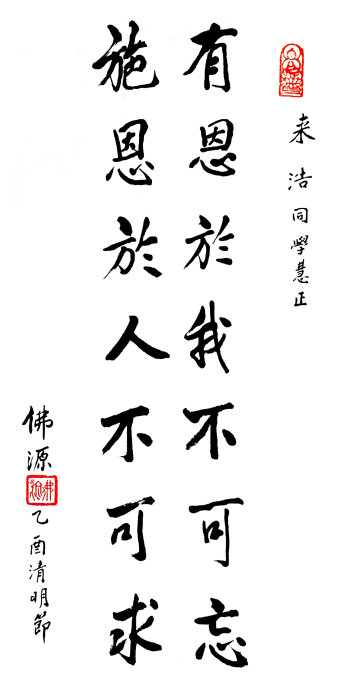 来浩同學慧正
有恩於我不可忘
施恩於人不可求
佛源
乙酉清明節